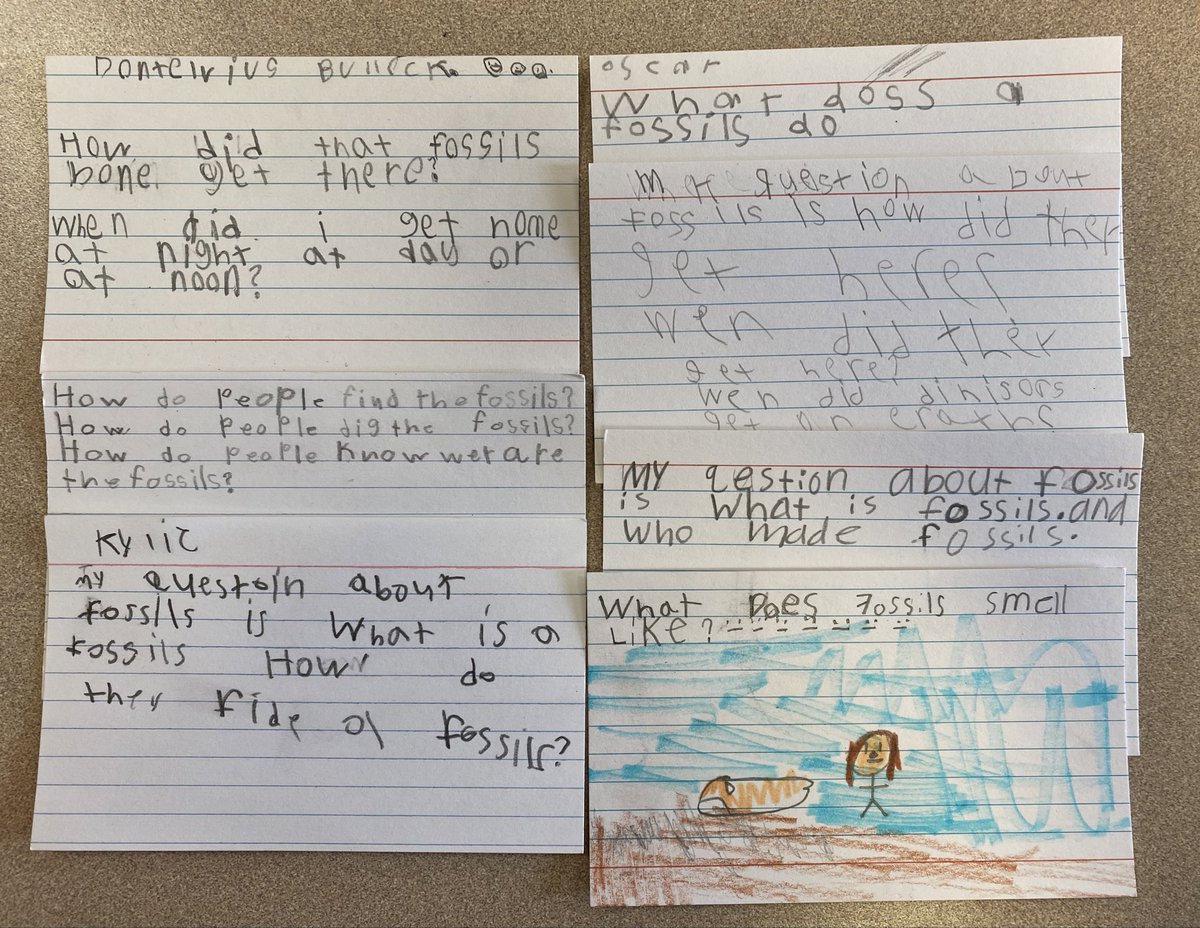 How did that fossils
bone get there?
when did i get home
at night at day or
at noon?
How do people find the fossils?
How do people dig the fossils?
How do people know wer are
the fossils?
Kylie
my questoin about
fossils is What is a
fossils How do
they fide a fossils?
oscar
What doss a
fossils do
question about
fossils is how did ther
get here?
wen did ther
get here?
wen did dinisors
get on eraths
MY qestion about fossils
is what is fossils.and
who made fossils.
What Does Fossils smell
Like?